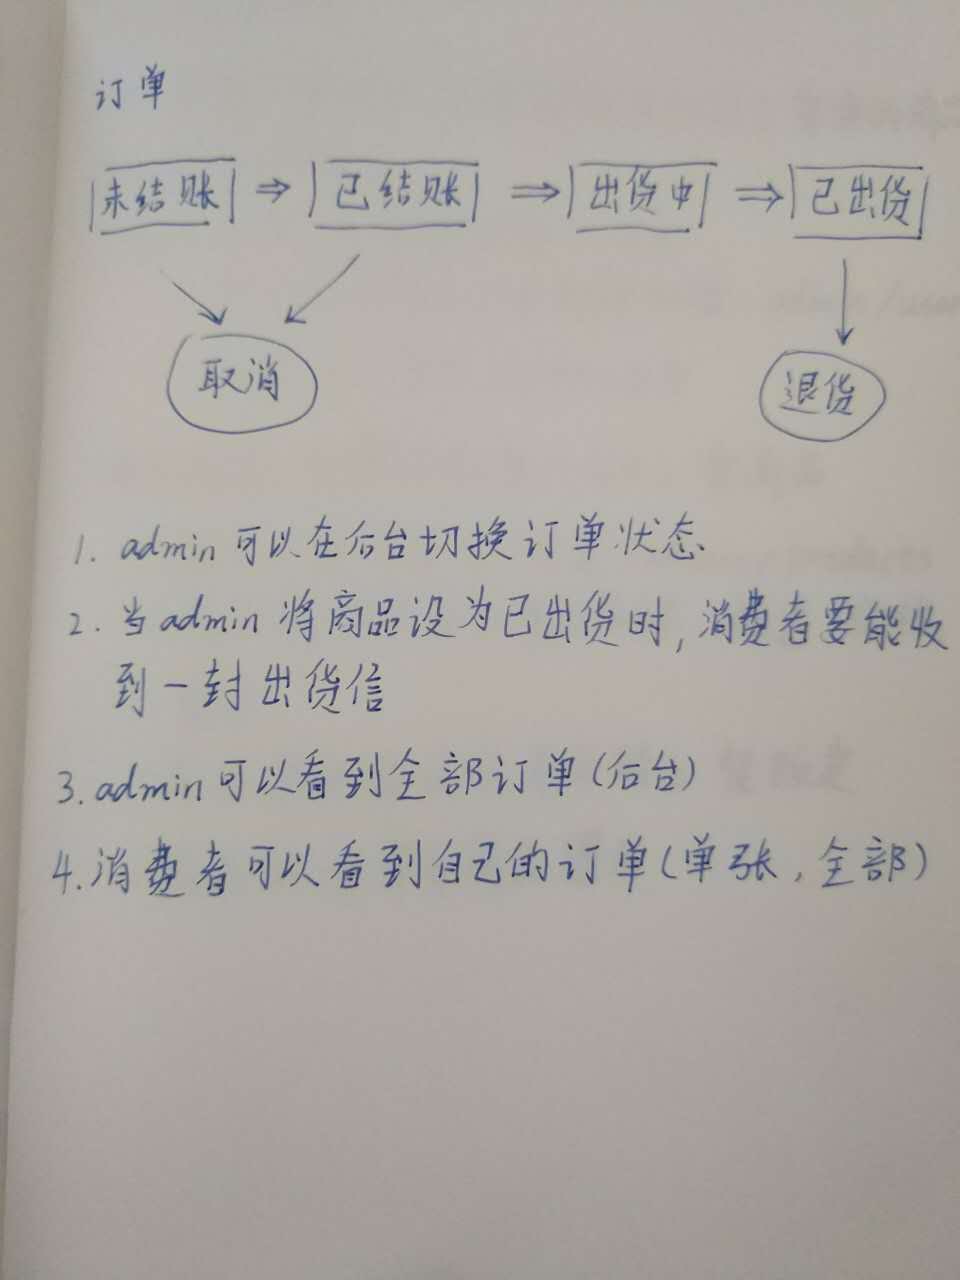 订单
未结账 ⇒ 已结账 ⇒ 出货中 ⇒ 已出货
取消 退货
1. admin 可以在后台切换订单状态
2. 当admin 将商品设为已出货时,消费者要能收
到一封出货信
3. admin 可以看到全部订单(后台)
4. 消费者可以看到自己的订单(单张,全部)